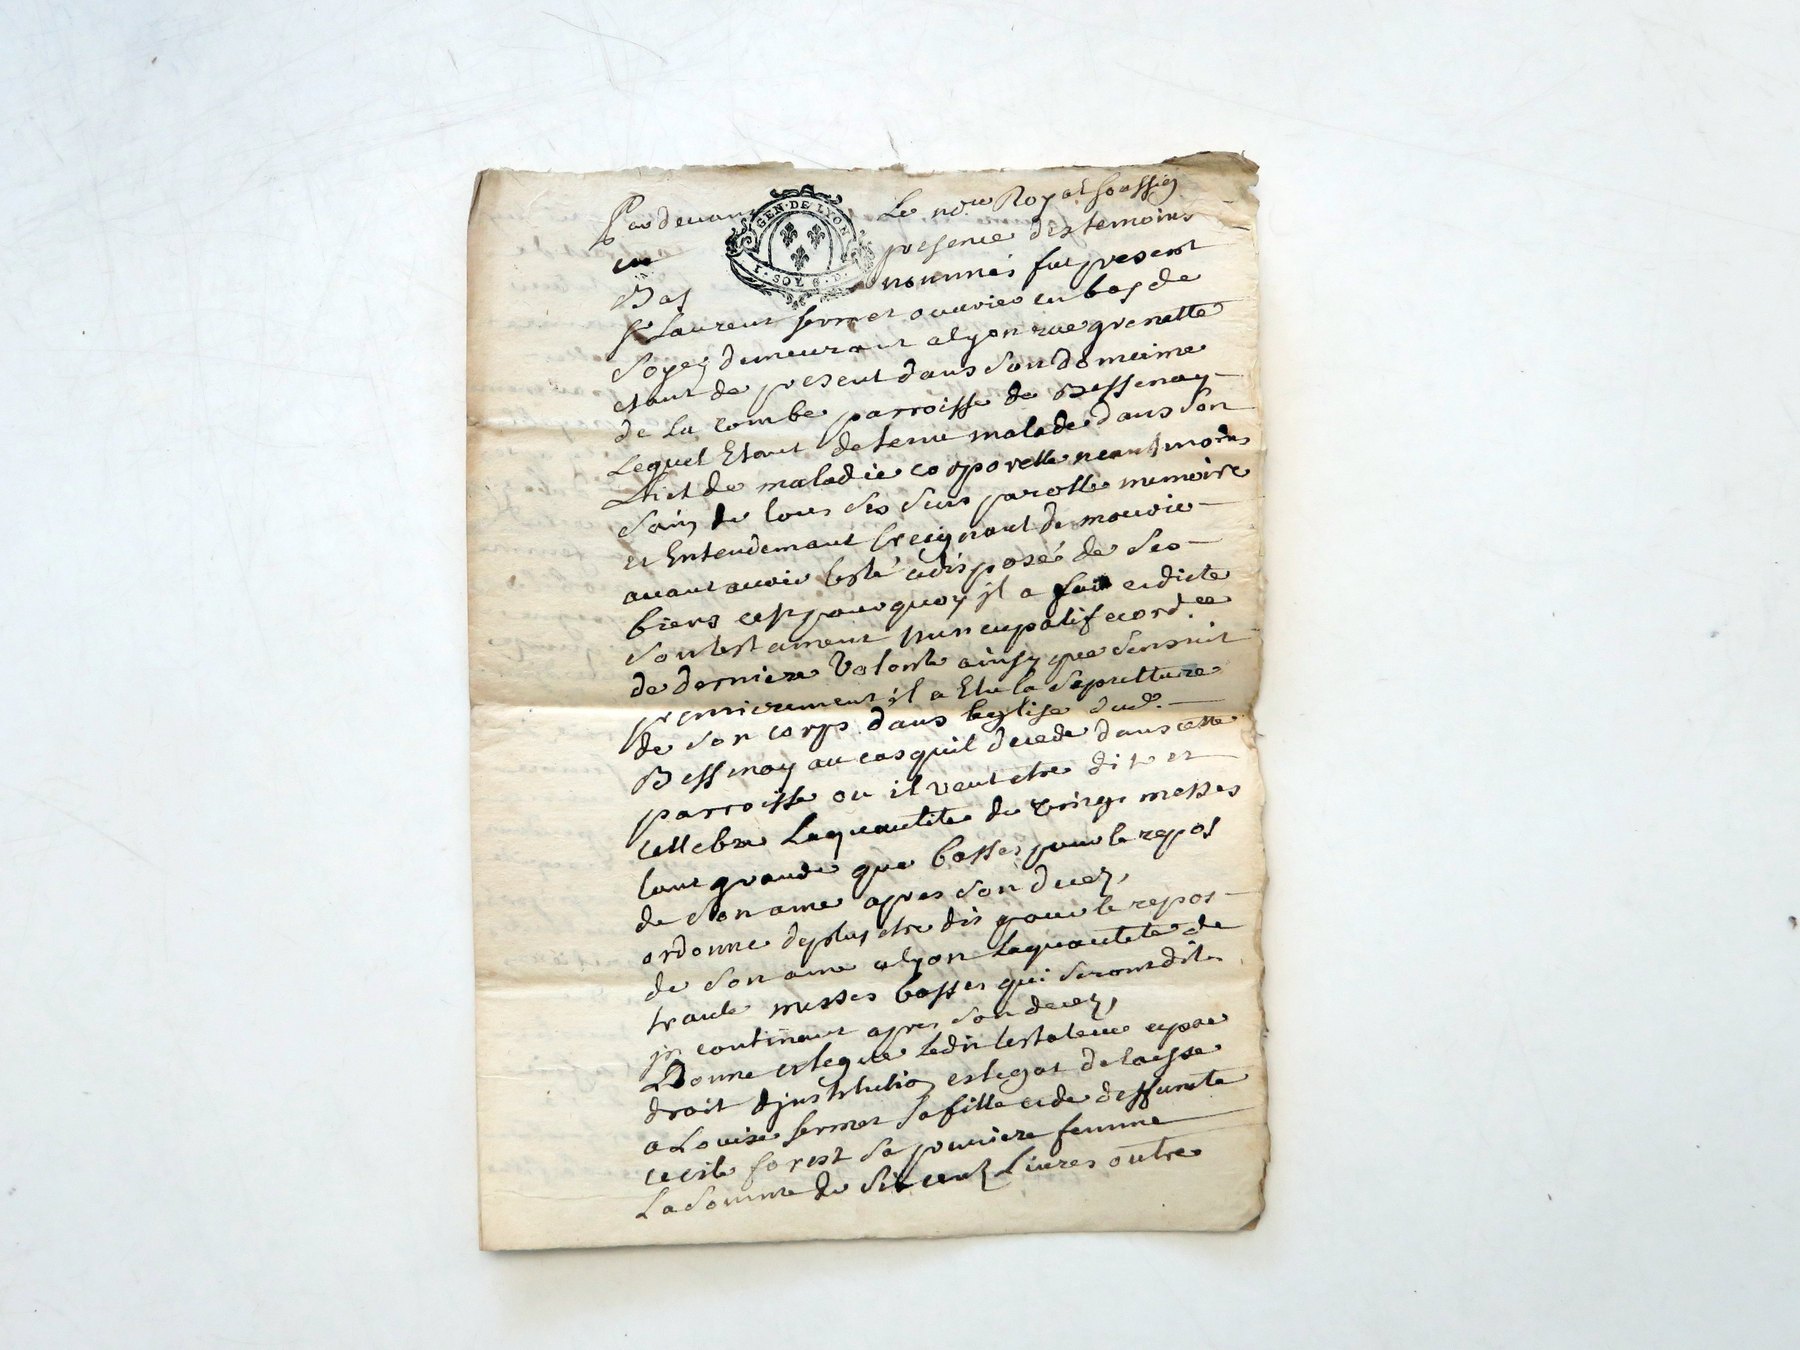 Pardevant Le nore Royal soussig
GEN·DE LYON
I·SOL 8 D
en presence des temoins
Bas nommés fut present
sr Laurent sermet ouvrier en bas de
soyes demeurant a lyon rue grenette
etant de present dans son domeine
de La Combe parroisse de Bessenay
Lequel Etant detenu malade dans son
Lict de maladie corporelle neantmoins
sain de tous ses sens parolle memoire
et Entendemant Creignant de mourir
avant avoir testé et disposé de ses
biens cest pourquoy jl a fait et dicte
son testament nuncupatif et ord.ce
de derniere Volonte ainsy que sensuit
premierement il a Elu la sepulture
de son corps dans leglise dud.
Bessenay au cas quil decede dans cette
parroisse ou il veut etre dit et
cellebre La quantite de vingt messes
tant grande que basses pour le repos
de son ame apres son decez,
ordonne deplus etre dit pour le repos
de son ame a lyon La quantite de
trante messes basses qui seront dites
jn continant apres son decez,
Donne et legue Ledit testateur et par
droit djnstitution et legat delaisse
a Louise sermet sa fille et de deffunte
Cecile forest sa premiere femme
La somme de six cent Livres outre